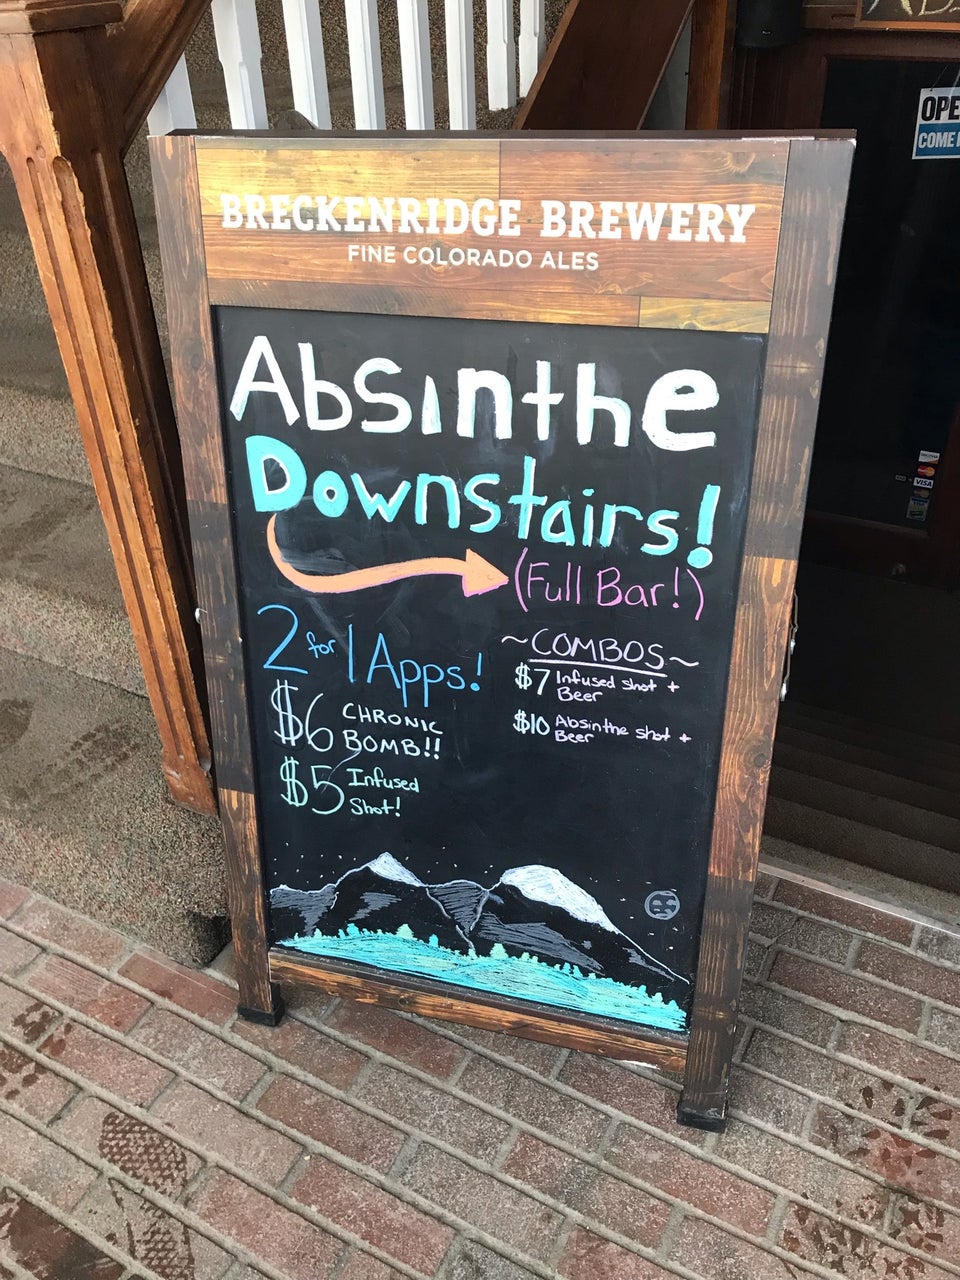 BRECKENRIDGE BREWERY
FINE COLORADO ALES
Absinthe
Downstairs!
(Full Bar!)
2 for 1 Apps!
$6 CHRONIC
BOMB!!
$5 Infused
Shot!
~COMBOS~
$7 Infused shot +
Beer
$10 Absinthe shot +
Beer
OPE
COME
DISCOVER
VISA